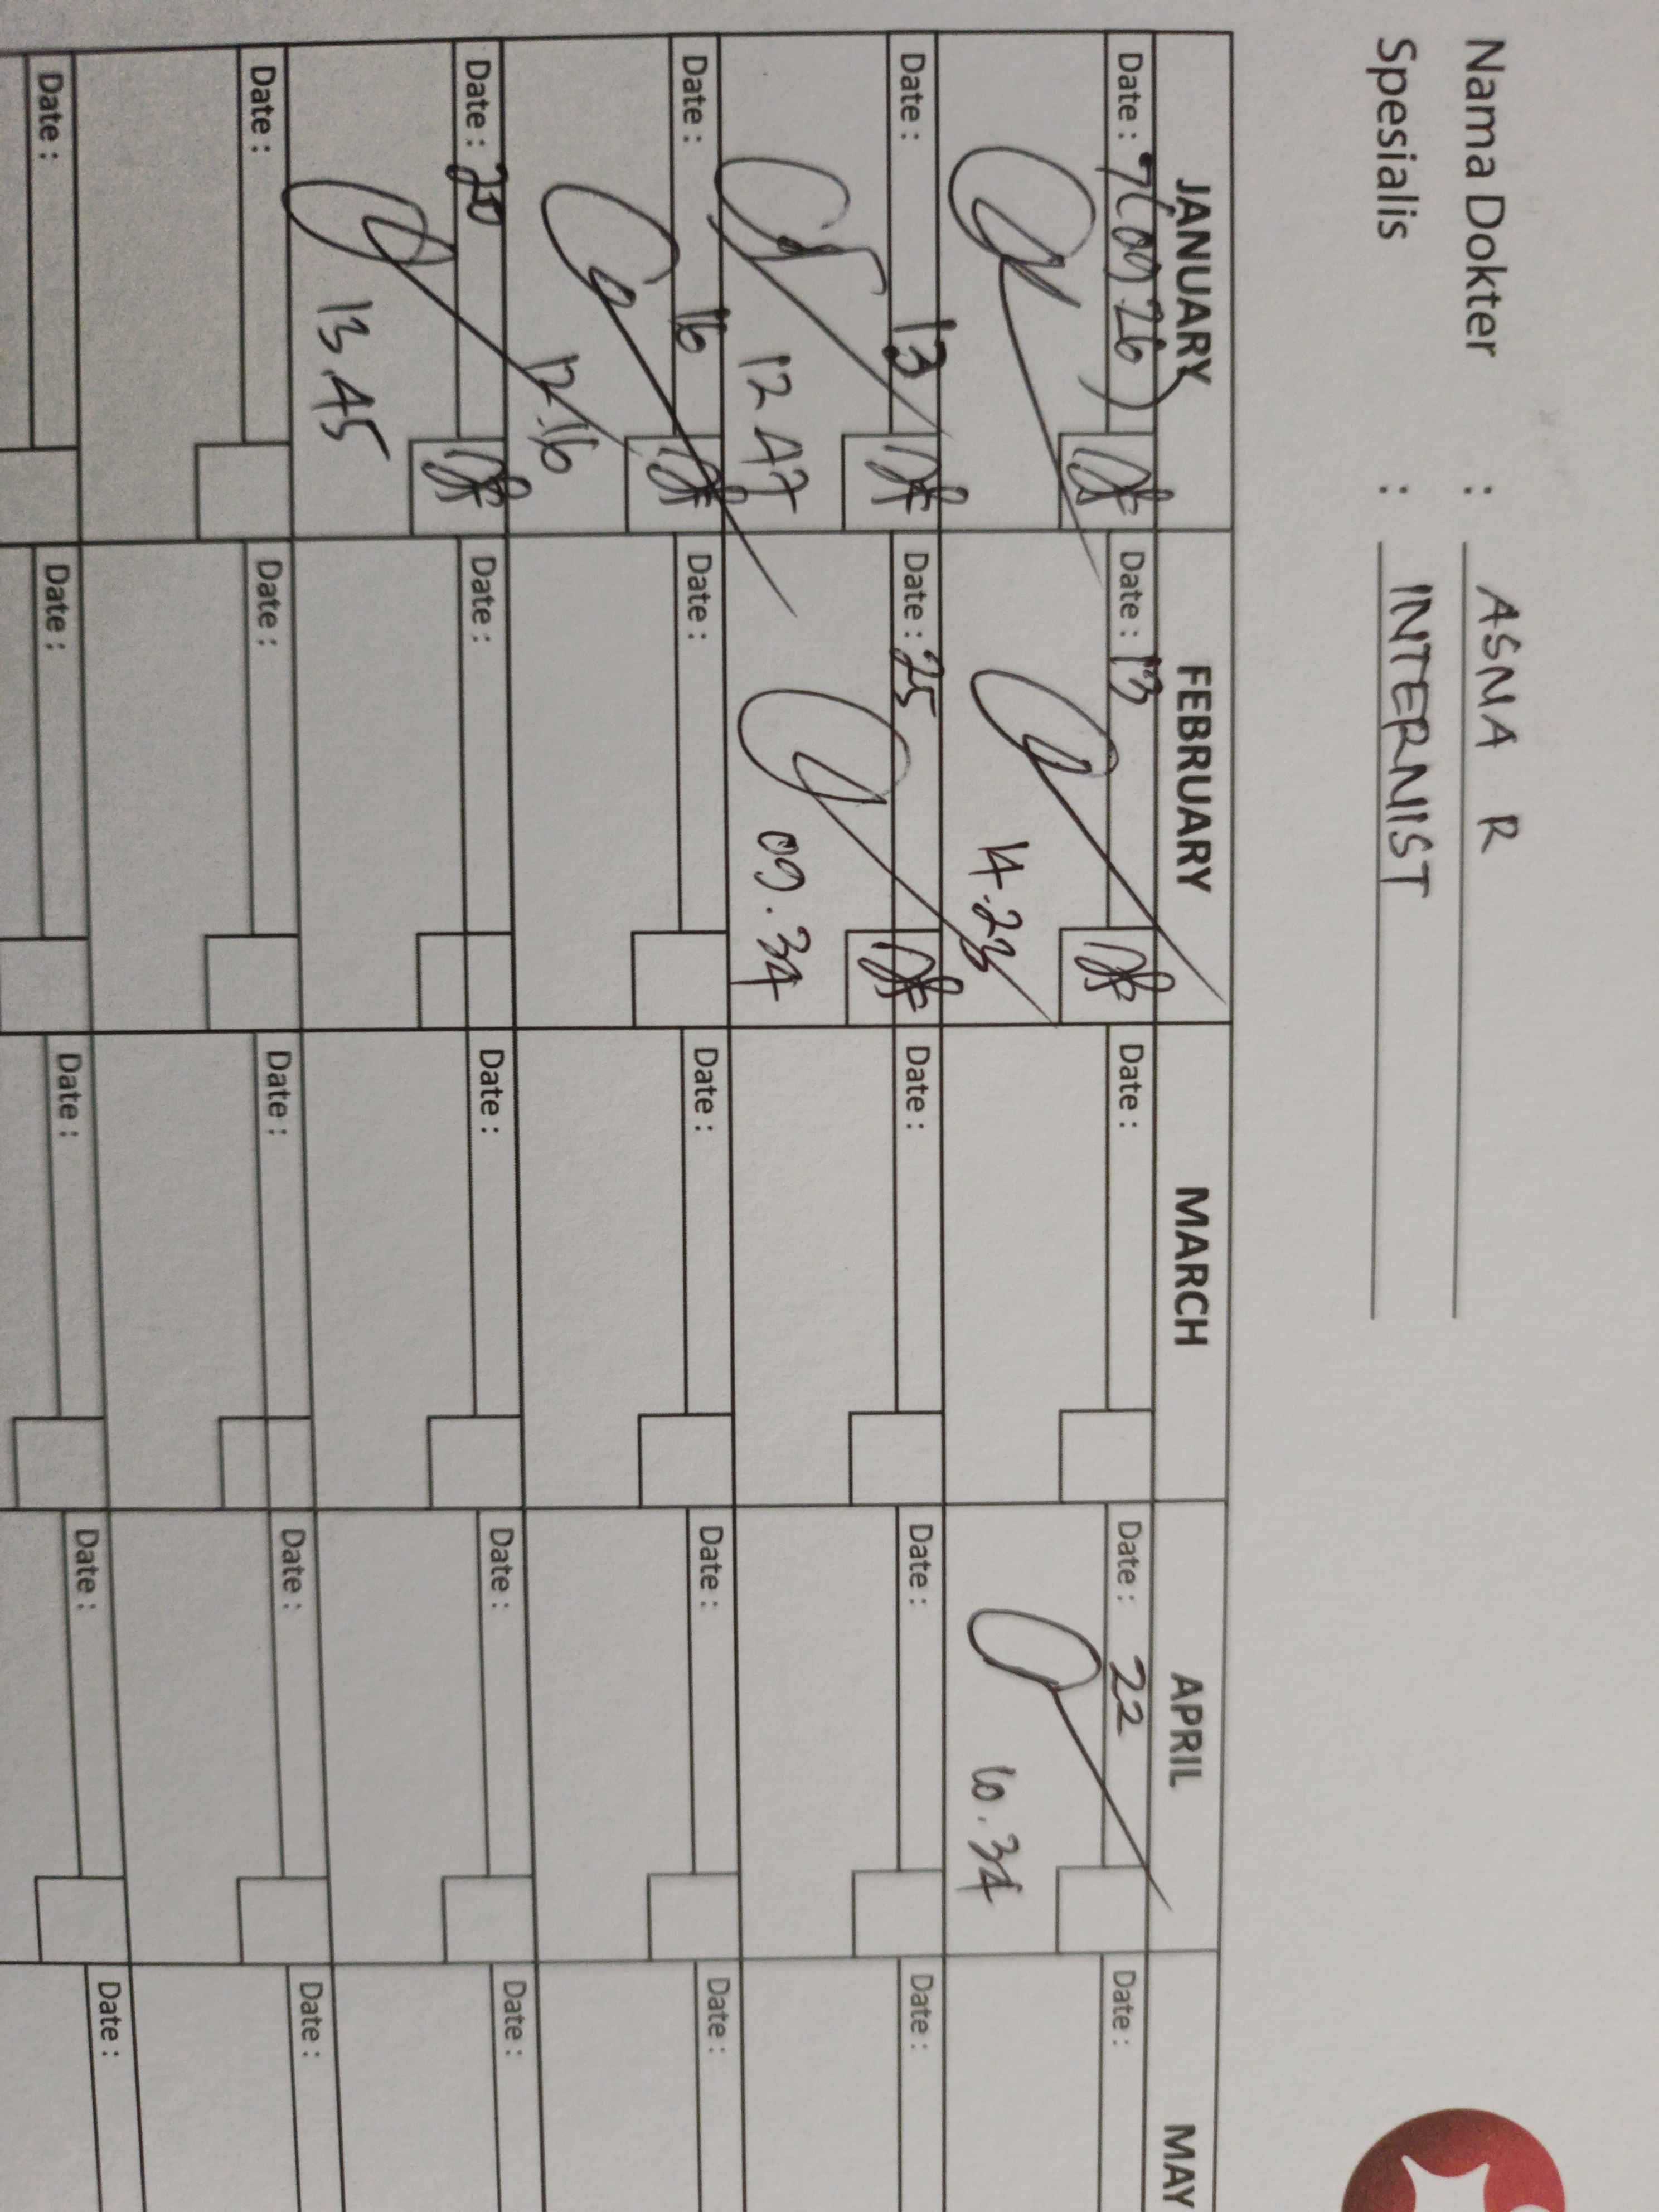 Nama Dokter : ASMA R
Spesialis : INTERNIST
JANUARY FEBRUARY MARCH APRIL MAY
Date : 7 (09 26) Date : 13 Date : Date : 22 Date :
14.23 10.34
Date : 13 Date : 25 Date : Date : Date :
12 47 09.34
Date : 16 Date : Date : Date : Date :
12.16
Date : Date : Date : Date : Date :
13.45
Date : Date : Date : Date : Date :
Date : Date : Date : Date : Date :